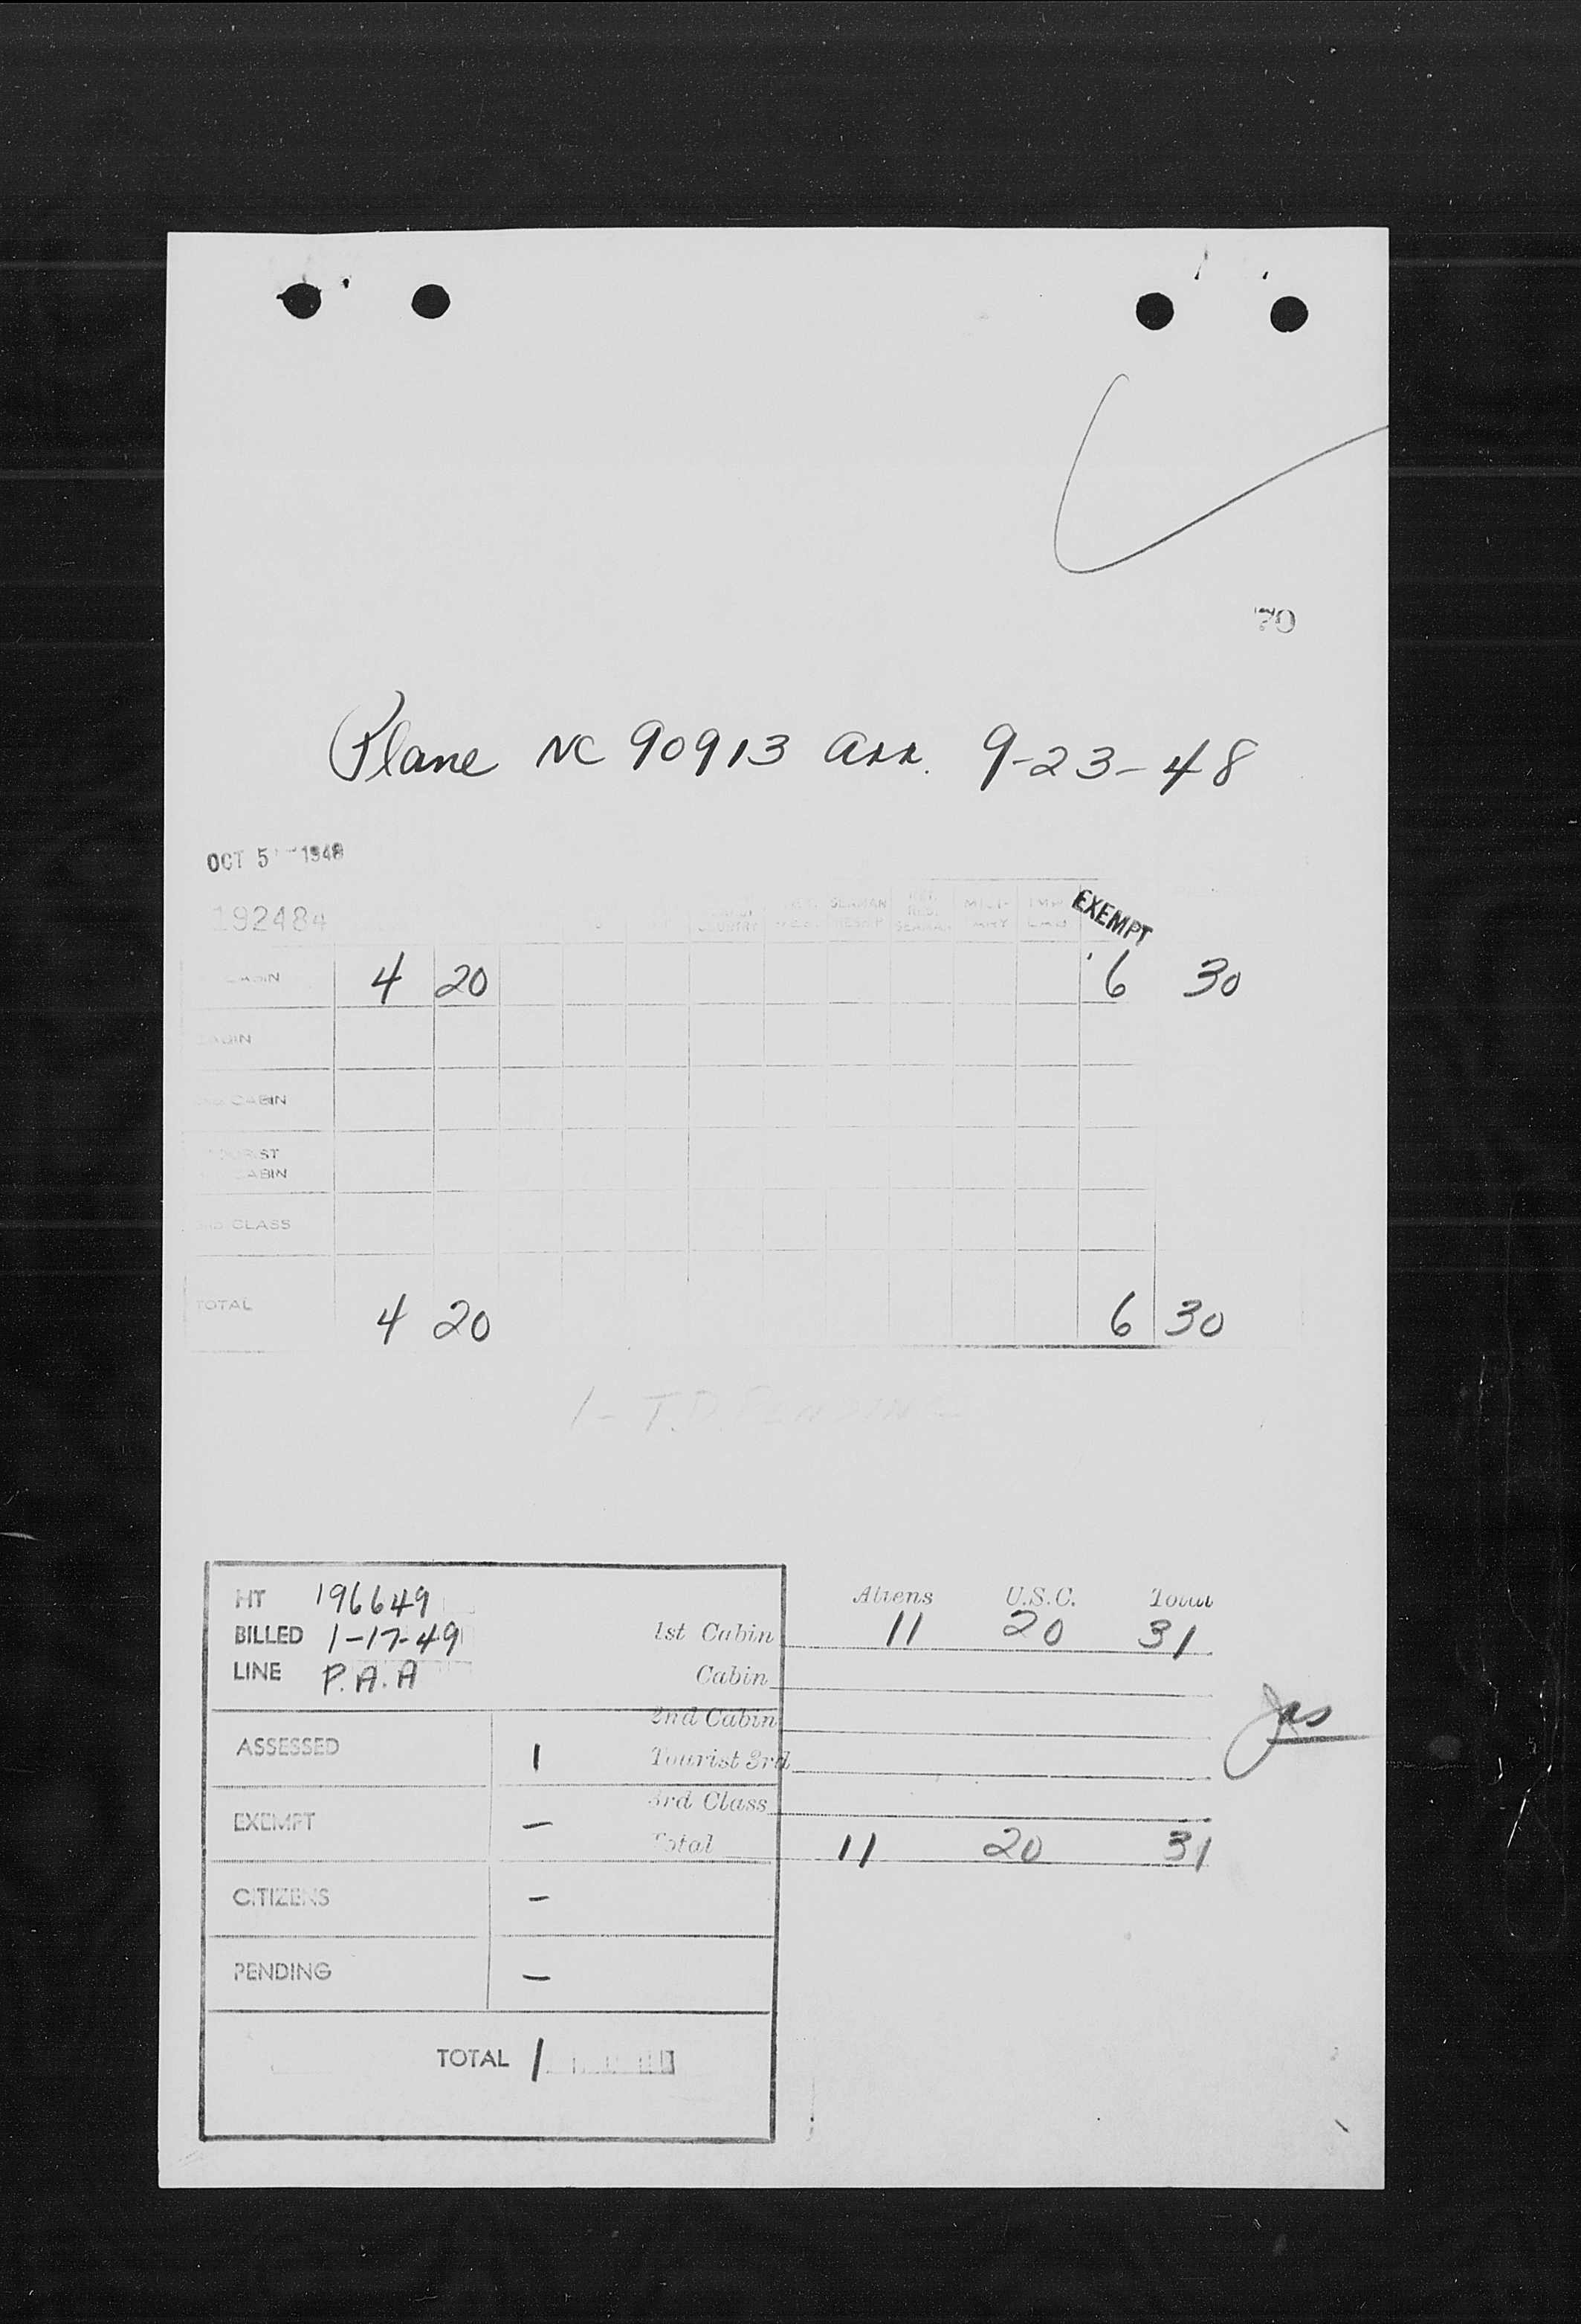 20
Plane NC 90913 arr. 9-23-48
OCT 5 1948
192484
SEAMAN
MILI-
EXEMPT
COUNTRY
SEAMAN
ARY
CABIN 4 20 6 30
CABIN
2ND CABIN
TOURIST
CABIN
3RD CLASS
TOTAL 4 20 6 30
1 - T.D. PENDING
HT 196649
BILLED 1-17-49
LINE P.A.A
ASSESSED 1
EXEMPT —
CITIZENS —
PENDING —
TOTAL 1
Aliens U.S.C. Total
1st Cabin 11 20 31
Cabin
2nd Cabin
Tourist 3rd
3rd Class
Total 11 20 31
Jas